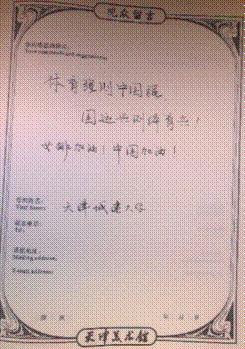 观众留言
您的感想和建议:
Your comments and suggestions:
体育强则中国强
国运兴则体育兴!
女排加油!中国加油!
您的姓名:
Your Name:
天津城建大学
联系电话:
Tel:
通讯地址:
Mailing address:
E-mail address:
年 月 日
天津美术馆